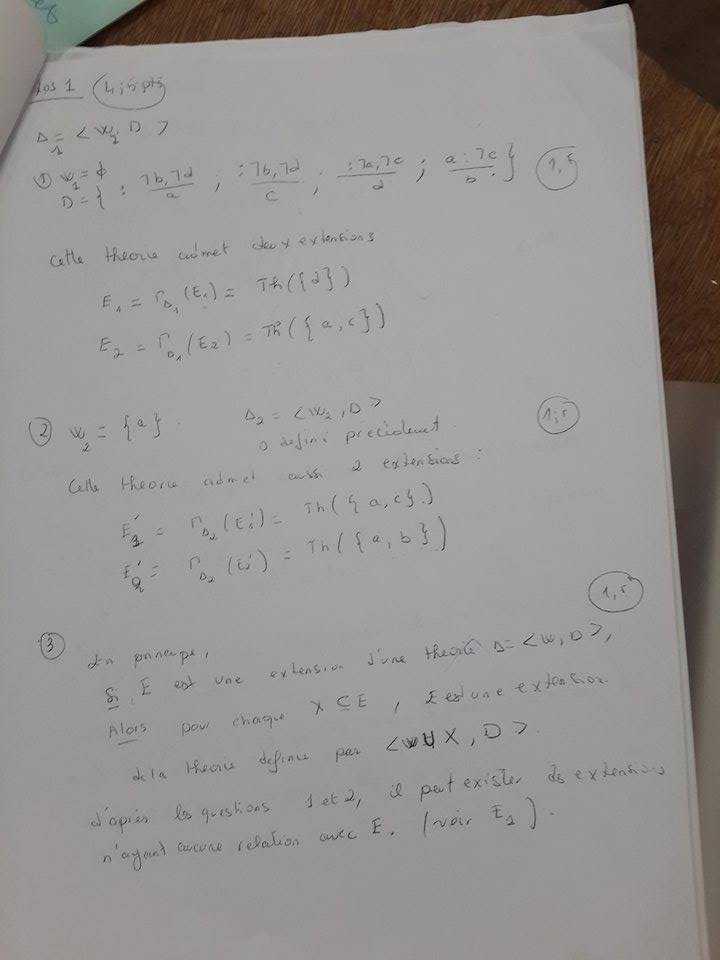 xos 1 (4,5 pts)
Δ₁ = < W₂, D >
① W₂ = ϕ
D = { : ⌐b,⌐d / a ; :⌐b,⌐d / c ; :⌐a,⌐c / d ; a:⌐c / b } 1,5
Cette theorie admet deux extensions
E₁ = Γ_Δ₁(E₁) = Th({d})
E₂ = Γ_Δ₁(E₂) = Th({a,c})
② W₂ = {a}. Δ₂ = <W₂, D> 1,5
D defini precedement.
Cette theorie admet aussi 2 extensions :
E'₁ = Γ_Δ₂(E'₁) = Th({a,c})
E'₂ = Γ_Δ₂(E₂') = Th({a,b})
③ 1,5
En principe,
Si, E est une extension d'une theorie Δ=<W,D>,
Alors pour chaque X ⊆ E, E est une extension
de la theorie definie par <W∪X, D>.
d'après les questions 1 et 2, il peut exister des extensions
n'ayant aucune relation avec E. (voir E₁).